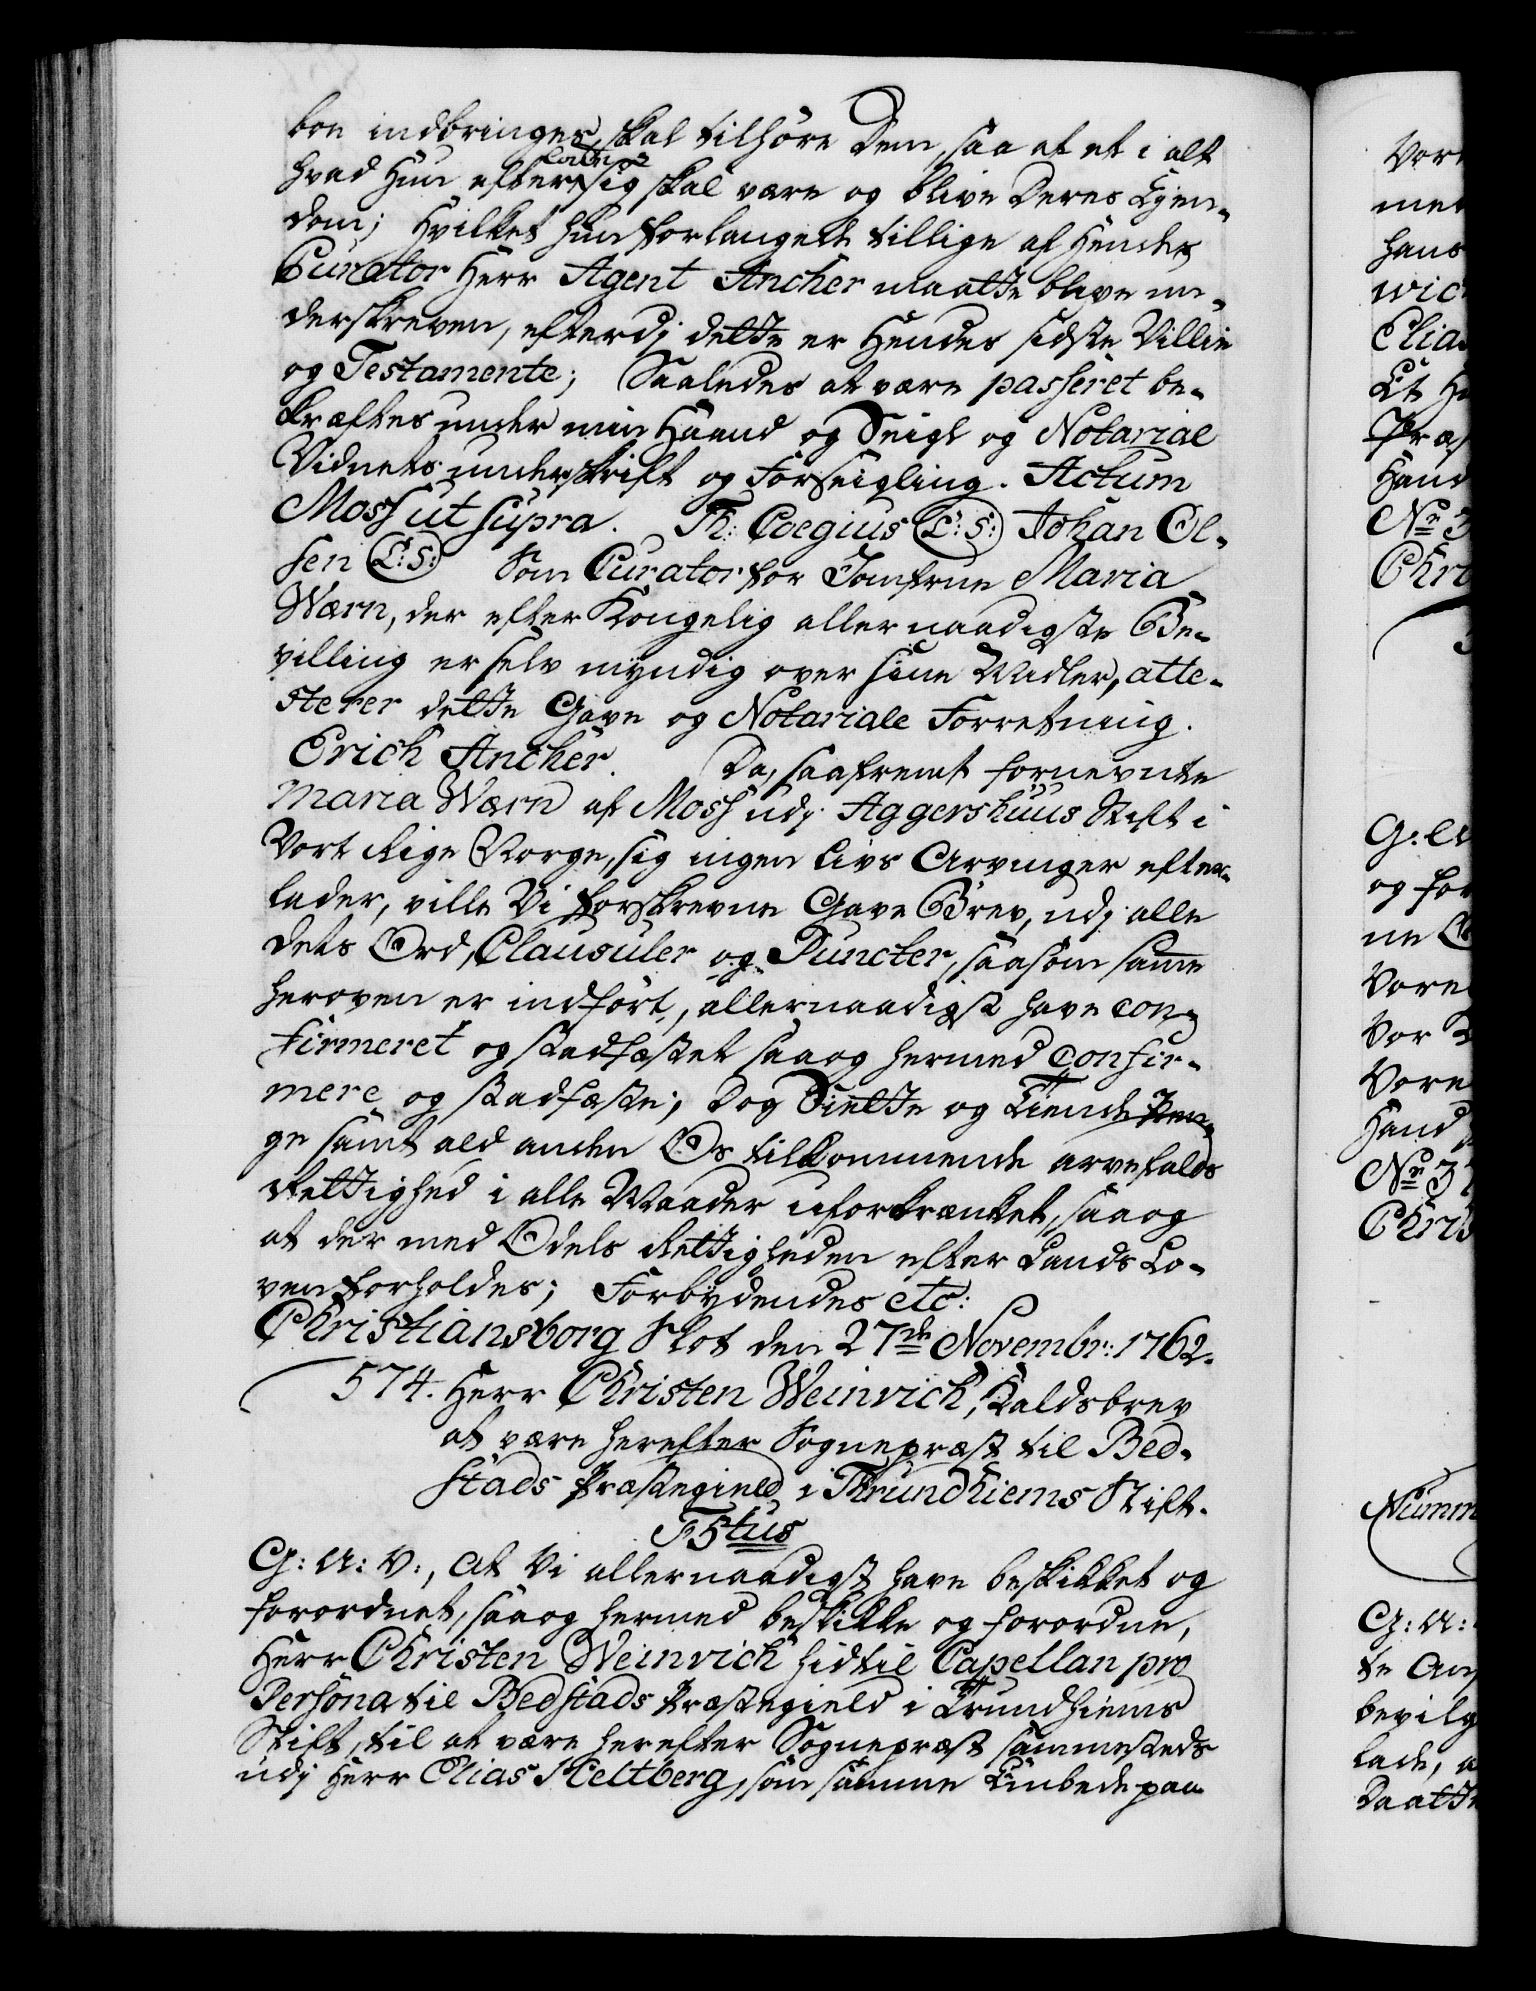 boe indbringes, skal tilhøre Dem, saa at et i alt
hvad Hun efter lader sig skal være og blive Deres Ejen-
dom; Hvilket hun forlangede tillige af Hendes
Curator Herr Agent Ancher maatte blive un-
derskreven, efterdj dette er Hendes sidste Villie
og Testamente; Saaledes at være passeret be-
kræftes under min Haand og Seigl og Notarial
Vidnets underskrift og Forseigling. Actum
Moss ut supra. Th: Coegius L:S: Johan Ol-
sen L:S: Som Curator for Jomfrue Maria
Wærn, der efter Kongelig allernaadigste Be-
villing er selv myndig over sine Midler, atte-
sterer dette Gave og Notariale Forretning.
Erich Ancher. Da, saafremt fornevnte
Maria Wærn af Moss udj Aggershuus Stift i
Vort Rige Norge, sig ingen Livs Arvinger efter-
lader, ville Vi forskrevne Gave Brev, udj alle
dets Ord, Clausuler og Puncter, saasom samme
heroven er indført, allernaadigst have con-
firmeret og stadfæstet saa og hermed confir-
mere og stadfæste; Dog Siette og Tiende Pen-
ge samt ald anden Os tilkommende arvefalds
Rettighed i alle Maader uforkrænket, saa og
at der med Odels Rettigheden efter Lands Lo-
ven forholdes; Forbydendes etc:
Christiansborg Slot den 27de Novembr: 1762.
574. Herr Christen Weinvich, Kaldsbrev
at være herefter Sognepræst til Bed-
stads Præstegield i Thrundhiems Stift.
F5tus
G: A: V:, At Vi allernaadigst have beskikket og
forordnet, saa og hermed beskikke og forordne,
Herr Christen Weinvich hidtil Capellan pro
Persona til Bedstads Præstegield i Trundhiems
Stift, til at være herefter Sognepræst sammesteds
udj Herr Elias Heltberg, som samme Embede paa